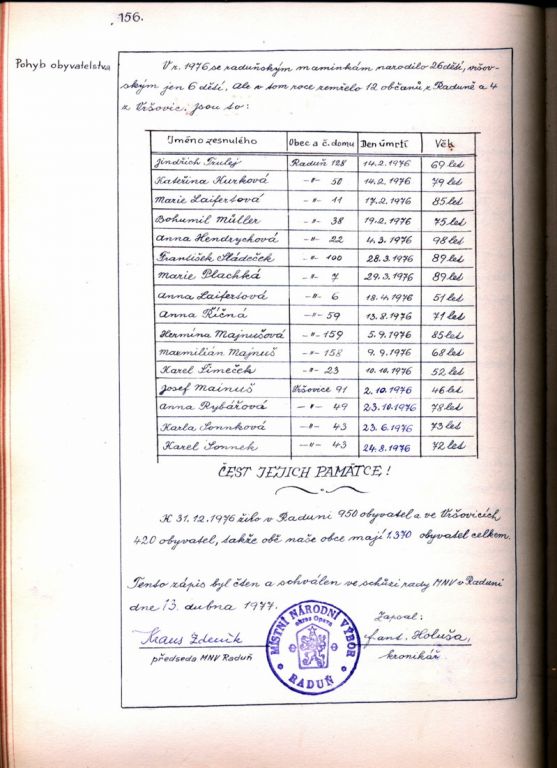 156.
Pohyb obyvatelstva
V r. 1976 se raduňským maminkám narodilo 26 dětí, vršov-
ským jen 6 dětí. Ale v tom roce zemřelo 12 občanů z Raduně a 4
z Vršovic. Jsou to:
Jméno zesnulého Obec a č. domu Den úmrtí Věk
Jindřich Trulej Raduň 128 14.2.1976 69 let
Kateřina Kurková –"– 50 14.2.1976 79 let
Marie Laifertová –"– 11 17.2.1976 85 let
Bohumil Müller –"– 38 19.2.1976 75 let
Anna Hendrychová –"– 22 4.3.1976 98 let
František Sládeček –"– 100 28.3.1976 89 let
Marie Plachká –"– 7 29.3.1976 89 let
Anna Laifertová –"– 6 18.4.1976 51 let
Anna Říčná –"– 59 13.8.1976 71 let
Hermína Majnušová –"– 159 5.9.1976 85 let
Maxmilián Majnuš –"– 158 9.9.1976 68 let
Karel Šimeček –"– 23 10.10.1976 52 let
Josef Mainuš Vršovice 91 2.10.1976 46 let
Anna Rybářová –"– 49 23.10.1976 78 let
Karla Sonnková –"– 43 23.6.1976 73 let
Karel Sonnek –"– 43 24.8.1976 72 let
ČEST JEJICH PAMÁTCE!
K 31.12.1976 žilo v Raduni 950 obyvatel a ve Vršovicích
420 obyvatel, takže obě naše obce mají 1.370 obyvatel celkem.
Tento zápis byl čten a schválen ve schůzi rady MNV v Raduni
dne 13. dubna 1977.
Zapsal:
Kraus Zdeněk
předseda MNV Raduň
MÍSTNÍ NÁRODNÍ VÝBOR
okres Opava
RADUŇ
Fant. Holuša,
kronikář.